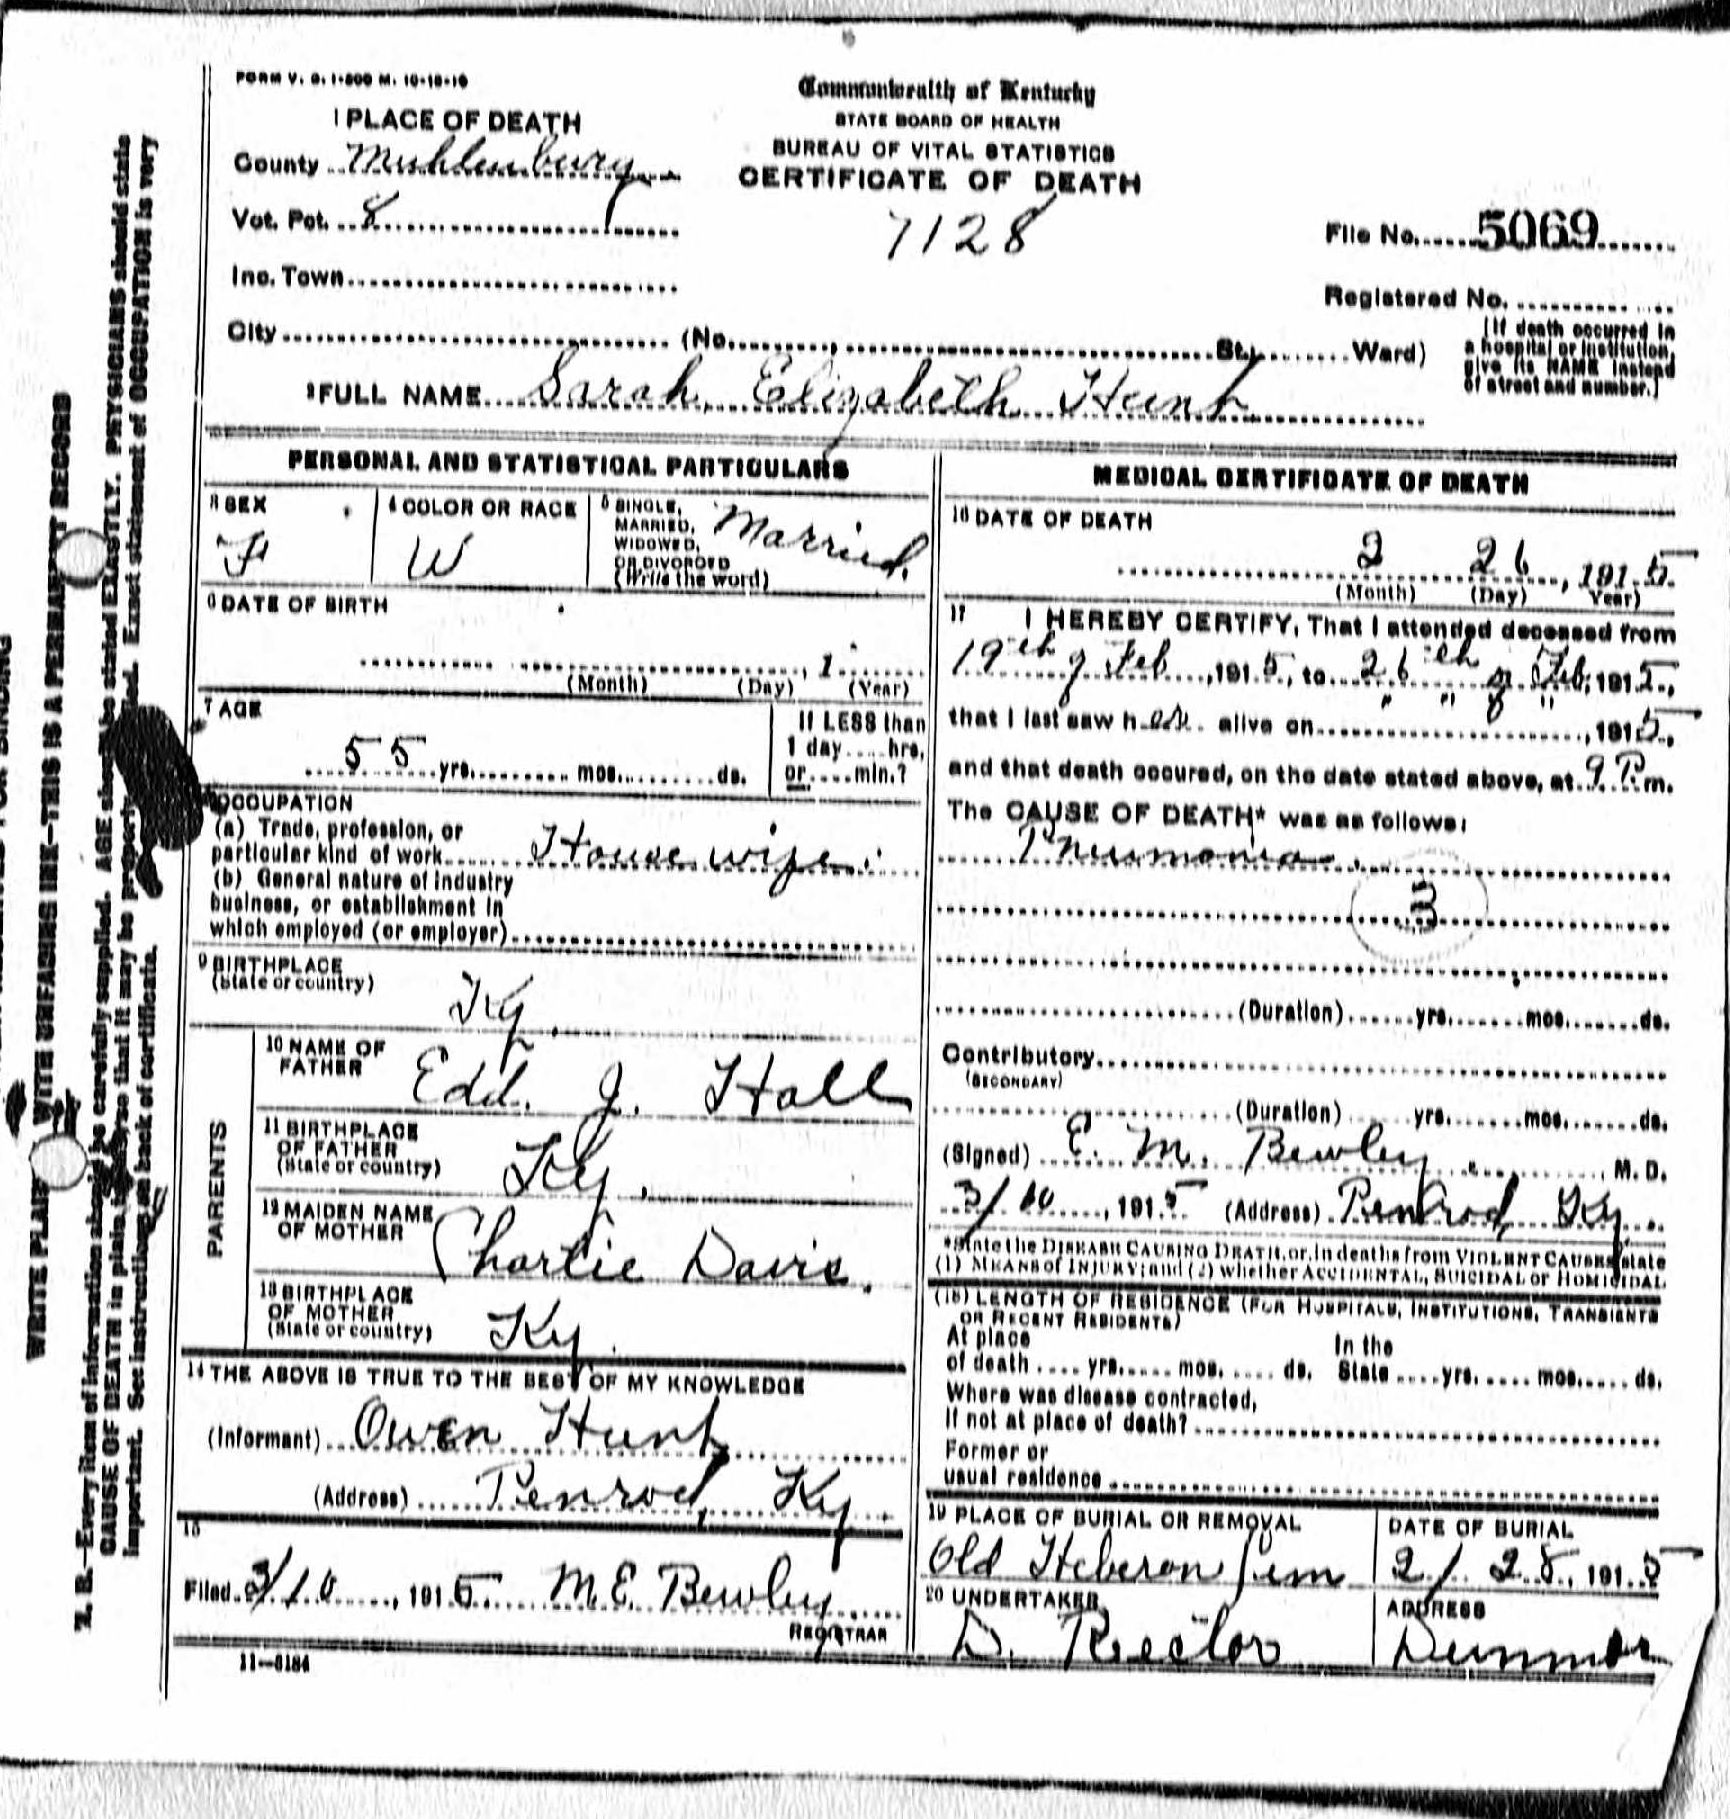 FORM V. S. 1-500 M. 10-18-10
1 PLACE OF DEATH
County Muhlenburg
Vot. Pct. 8
Inc. Town
City (No. , St., Ward)
Commonwealth of Kentucky
STATE BOARD OF HEALTH
BUREAU OF VITAL STATISTICS
CERTIFICATE OF DEATH
7128
File No. 5069
Registered No.
[If death occurred in
a hospital or institution,
give its NAME instead
of street and number.]
2 FULL NAME Sarah Elizabeth Hunt
PERSONAL AND STATISTICAL PARTICULARS
3 SEX
F
4 COLOR OR RACE
W
5 SINGLE,
MARRIED,
WIDOWED,
OR DIVORCED
(Write the word)
Married
6 DATE OF BIRTH
, 1
(Month) (Day) (Year)
7 AGE
55 yrs. mos. ds.
If LESS than
1 day hrs.
or min.?
8 OCCUPATION
(a) Trade, profession, or
particular kind of work House wife
(b) General nature of industry
business, or establishment in
which employed (or employer)
9 BIRTHPLACE
(State or country)
Ky.
PARENTS
10 NAME OF
FATHER
Edd. J. Hall
11 BIRTHPLACE
OF FATHER
(State or country)
Ky.
12 MAIDEN NAME
OF MOTHER
Charlie Davis.
13 BIRTHPLACE
OF MOTHER
(State or country)
Ky.
14 THE ABOVE IS TRUE TO THE BEST OF MY KNOWLEDGE
(Informant) Owen Hunt
(Address) Penrod, Ky
15
Filed 3/10, 1915 M.E. Bewley
REGISTRAR
11-8184
MEDICAL CERTIFICATE OF DEATH
16 DATE OF DEATH
2 26, 1915
(Month) (Day) Year)
17 I HEREBY CERTIFY, That I attended deceased from
19th of Feb, 1915, to 26th of Feb, 1915,
that I last saw her alive on " " " , 1915,
and that death occured, on the date stated above, at 9 P.m.
The CAUSE OF DEATH* was as follows:
Pneumonia
3
(Duration) yrs. mos. ds.
Contributory
(SECONDARY)
(Duration) yrs. mos. ds.
(Signed) E. M. Bewley, M. D.
3/10, 1915 (Address) Penrod, Ky.
*State the DISEASE CAUSING DEATH, or, in deaths from VIOLENT CAUSES state
(1) MEANS of INJURY; and (2) whether ACCIDENTAL, SUICIDAL or HOMICIDAL
(18) LENGTH OF RESIDENCE (FOR HOSPITALS, INSTITUTIONS, TRANSIENTS
OR RECENT RESIDENTS)
At place
of death yrs. mos. ds.
In the
State yrs. mos. ds.
Where was disease contracted,
If not at place of death?
Former or
usual residence
19 PLACE OF BURIAL OR REMOVAL
Old Heberon
DATE OF BURIAL
2/28, 1915
20 UNDERTAKER
D. Rector
ADDRESS
Dunmor
WRITE UNFADING INK—THIS IS A RECORD
N. B.—Every item of information should be carefully supplied. AGE should be stated EXACTLY. PHYSICIANS should state
CAUSE OF DEATH in plain so that it may be properly Exact statement of OCCUPATION is very
important. See instructions on back of certificate.